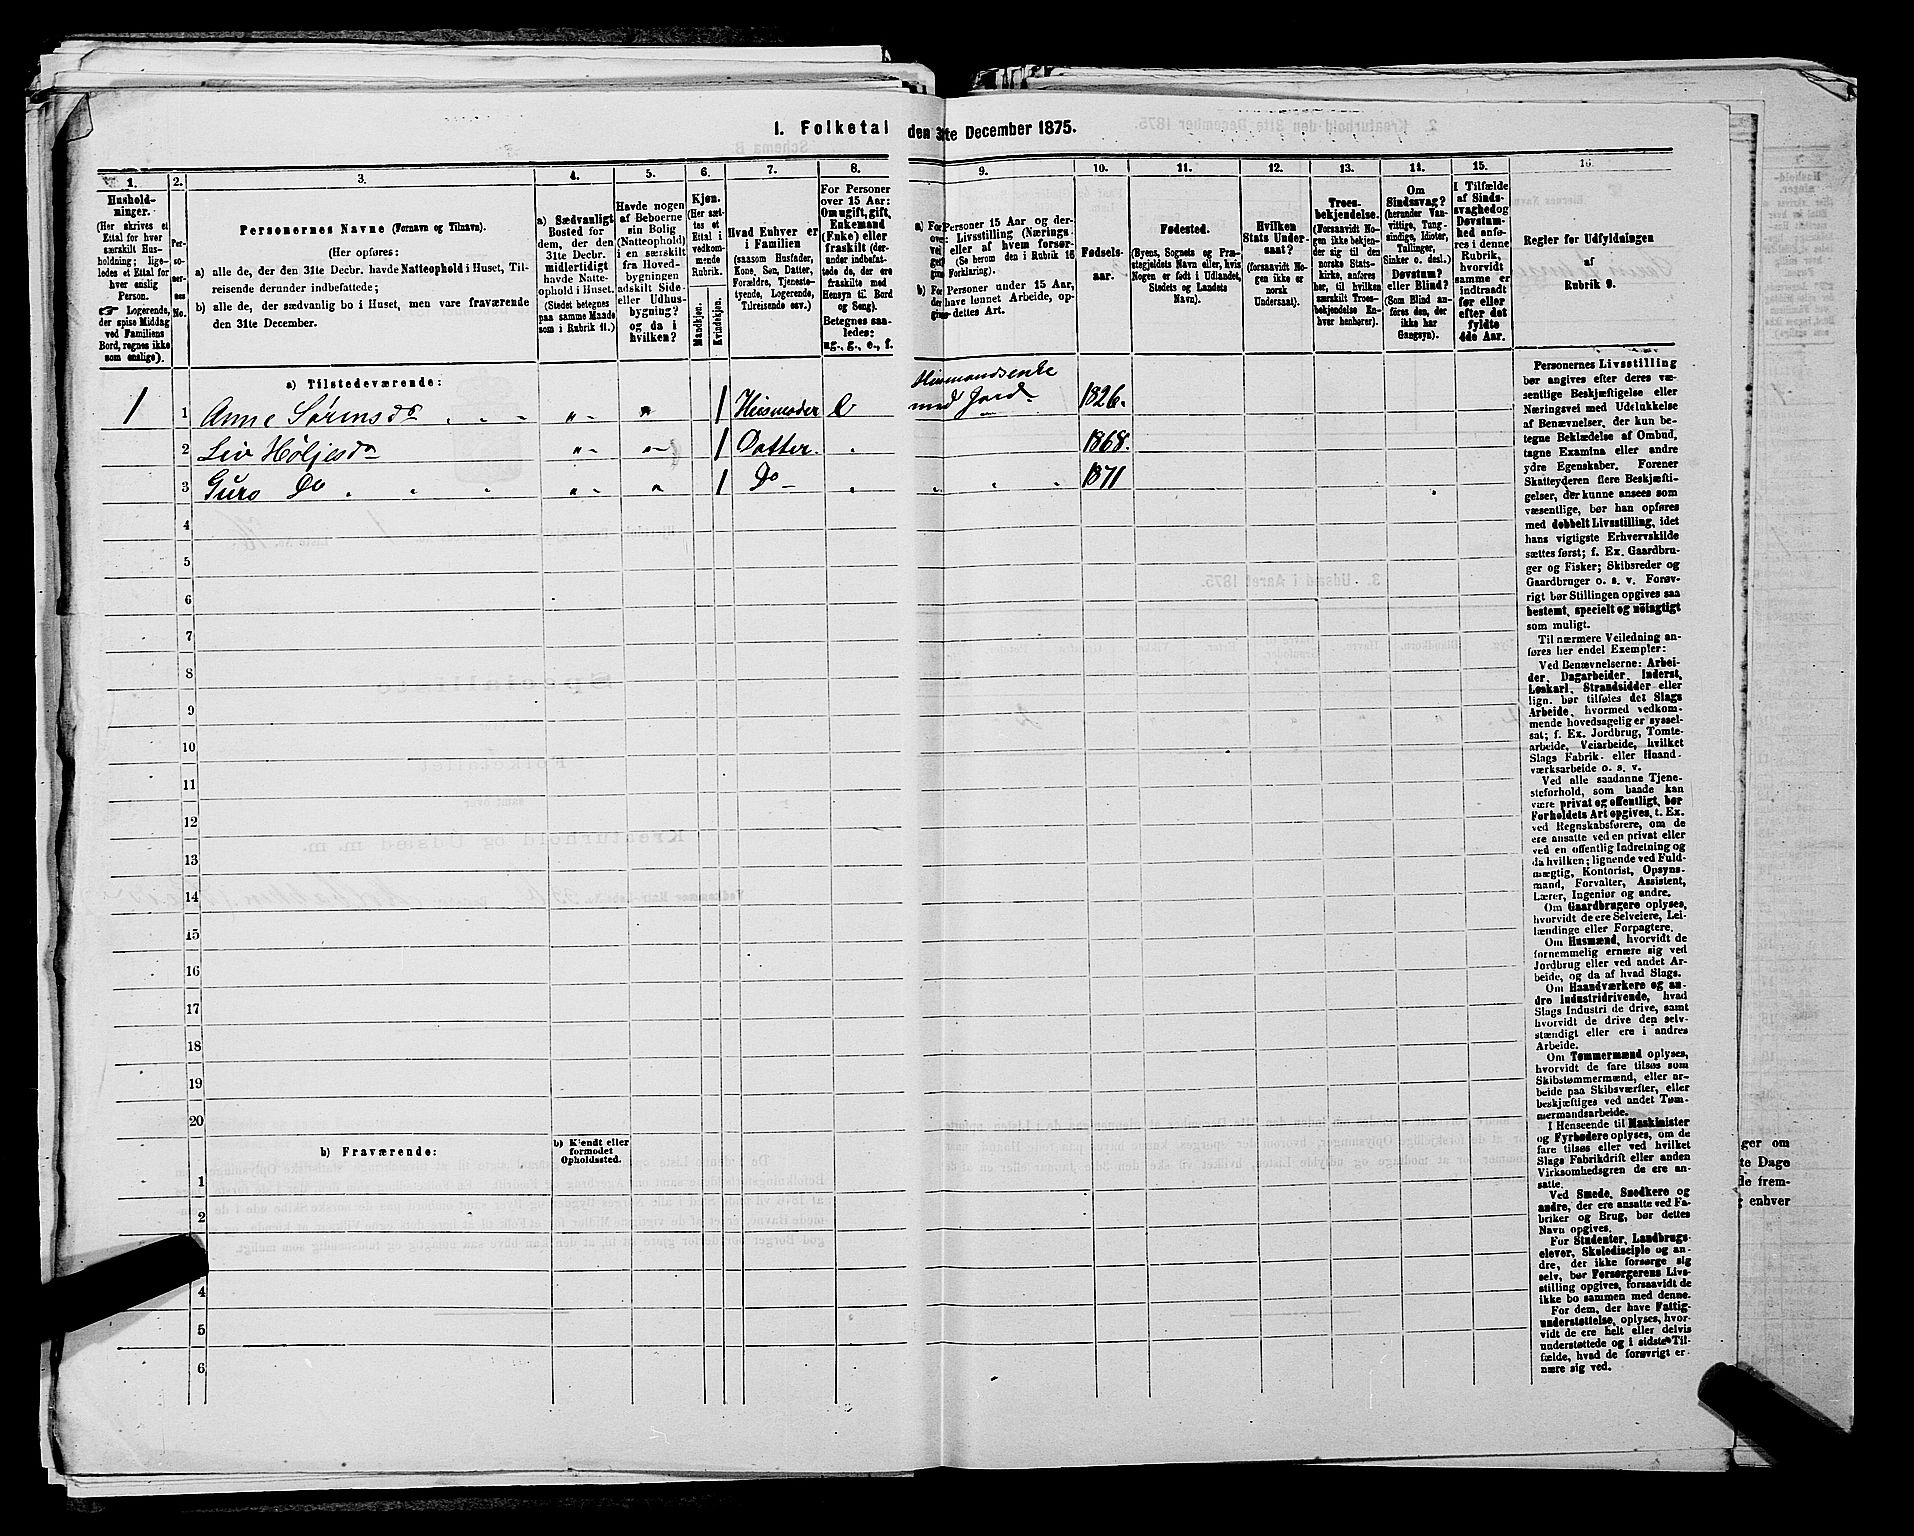 I. Folketal den 31te December 1875.
1. 2. 3. 4. 5. 6. 7. 8. 9. 10. 11. 12. 13. 14. 15. 16.
Hushold-
ninger.
(Her skrives et
Ettal for hver
særskilt Hus-
holdning; lige-
ledes et Ettal for
hver enslig
Person.
☞ Logerende,
der spise Middag
ved Familiens
Bord, regnes ikke
som enslige).
Per-
so-
ner-
nes
No.
Personernes Navne (Fornavn og Tilnavn).
(Her opføres:
a) alle de, der den 31te Decbr. havde Natteophold i Huset, Til-
reisende derunder indbefattede;
b) alle de, der sædvanlig bo i Huset, men vare fraværende
den 31te December.
a) Sædvanligt
Bosted for
dem, der den
31te Decbr.
midlertidigt
havde Natte-
ophold i Huset.
(Stedet betegnes
paa samme Maade
som i Rubrik 11.)
Havde nogen
af Beboerne
sin Bolig
(Natteophold)
i en særskilt
fra Hoved-
bygningen
adskilt Side-
eller Udhus-
bygning?
og da i
hvilken?
Kjøn.
(Her sæt-
tes et
Ettal i
vedkom-
mende
Rubrik.
Mandkjøn.
Kvindekjøn.
Hvad Enhver er
i Familien
(saasom Husfader,
Kone, Søn, Datter,
Forældre, Tjeneste-
tyende, Logerende,
Tilreisende osv.)
For Personer
over 15 Aar:
Om ugift, gift,
Enkemand
(Enke) eller
fraskilt (der-
under indbefat-
tede de, der ere
fraskilte med
Hensyn til Bord
og Seng).
Betegnes saa-
ledes:
ug., g., e., f.
a) For Personer 15 Aar og der-
over: Livsstilling (Nærings-
vei eller af hvem forsør-
get). (Se herom den i Rubrik 16
givne Forklaring).
b) For Personer under 15 Aar,
der have lønnet Arbeide, op-
gives dettes Art.
Fødsels-
aar.
Fødested.
(Byens, Sognets og Præ-
stegjeldets Navn eller, hvis
Nogen er født i Udlandet,
Stedets og Landets
Navn).
Hvilken
Stats Under-
saat?
(forsaavidt No-
gen ikke er
norsk
Undersaat).
Troes-
bekjendelse.
(Forsaavidt No-
gen ikke bekjen-
der sig til den
norske Stats-
kirke, anføres
her, til hvilken
særskilt Troes-
bekjendelse En-
hver henhører).
Om
Sindssvag?
(herunder Van-
vittige, Tung-
sindige, Idioter,
Tullinger,
Sinker o. desl.)
Døvstum?
eller Blind?
(Som Blind an-
føres den, der
ikke har
Gangsyn).
I Tilfælde
af Sinds-
svaghed og
Døvstum-
hed anfø-
res i denne
Rubrik,
hvorvidt
samme er
indtraadt
før eller
efter det
fyldte
4de Aar.
Regler for Udfyldningen
af
Rubrik 9.
a) Tilstedeværende:
1 1 Anne Sørensdr " " 1 Husmoder E Husmandsenke med Jord 1826.
2 Liv Høljesdr " " 1 Datter. 1868.
3 Guro Do " " 1 Do 1871
4
5
6
7
8
9
10
11
12
13
14
15
16
17
18
19
20
b) Fraværende:
b) Kjendt eller
formodet
Opholdssted.
1
2
4
5
6
Personernes Livsstilling
bør angives efter deres væ-
sentlige Beskjæftigelse eller
Næringsvei med Udelukkelse
af Benævnelser, der kun be-
tegne Beklædelse af Ombud,
tagne Examina eller andre
ydre Egenskaber. Forener
Skatteyderen flere Beskjæfti-
gelser, der kunne ansees som
væsentlige, bør han opføres
med dobbelt Livsstilling, idet
hans vigtigste Erhvervskilde
sættes først; f. Ex. Gaardbru-
ger og Fisker; Skibsreder og
Gaardbruger o. s. v. Forøv-
rigt bør Stillingen opgives saa
bestemt, specielt og nøiagtigt
som muligt.
Til nærmere Veiledning an-
føres her endel Exempler:
Ved Benævnelserne: Arbei-
der, Dagarbeider, Inderst,
Løskarl, Strandsidder eller
lign. bør tilføies det Slags
Arbeide, hvormed vedkom-
mende hovedsagelig er syssel-
sat; f. Ex. Jordbrug, Tomte-
arbeide, Veiarbeide, hvilket
Slags Fabrik- eller Haand-
værksarbeide o. s. v.
Ved alle saadanne Tjene-
steforhold, som baade kan
være privat og offentligt, bør
Forholdets Art opgives, t. Ex.
ved Regnskabsførere, om de
ere ansatte ved en privat eller
ved en offentlig Indretning og
da hvilken; lignende ved Fuld-
mægtig, Kontorist, Opsyns-
mand, Forvalter, Assistent,
Lærer, Ingeniør og andre.
Om Gaardbrugere oplyses,
hvorvidt de ere Selveiere, Lei-
lændinge eller Forpagtere.
Om Husmænd, hvorvidt de
fornemmelig ernære sig ved
Jordbrug eller ved andet Ar-
beide, og da af hvad Slags.
Om Haandværkere og an-
dre Industridrivende, hvad
Slags Industri de drive, samt
hvorvidt de drive den selv-
stændigt eller ere i andres
Arbeide.
Om Tømmermænd oplyses,
hvorvidt de fare tilsøs som
Skibstømmermænd, eller ar-
beide paa Skibsværfter, eller
beskjæftiges ved andet Tøm-
mermandsarbeide.
I Henseende til Maskinister
og Fyrbødere oplyses, om de
fare tilsøs eller ved hvilket
Slags Fabrikdrift eller anden
Virksomhedsgren de ere an-
satte.
Ved Smede, Snedkere og
andre, der ere ansatte ved Fa-
briker og Brug, bør dettes
Navn opgives.
For Studenter, Landbrugs-
elever, Skoledisciple og an-
dre, der ikke forsørge sig
selv, bør Forsørgerens Livs-
stilling opgives, forsaavidt de
ikke bo sammen med denne.
For dem, der have Fattig-
understøttelse, oplyses, hvor-
vidt de ere helt eller delvis
understøttede og i sidste Til-
fælde, hvad de forøvrigt er-
nære sig ved.
ger om
te Dage
de frem-
enhver